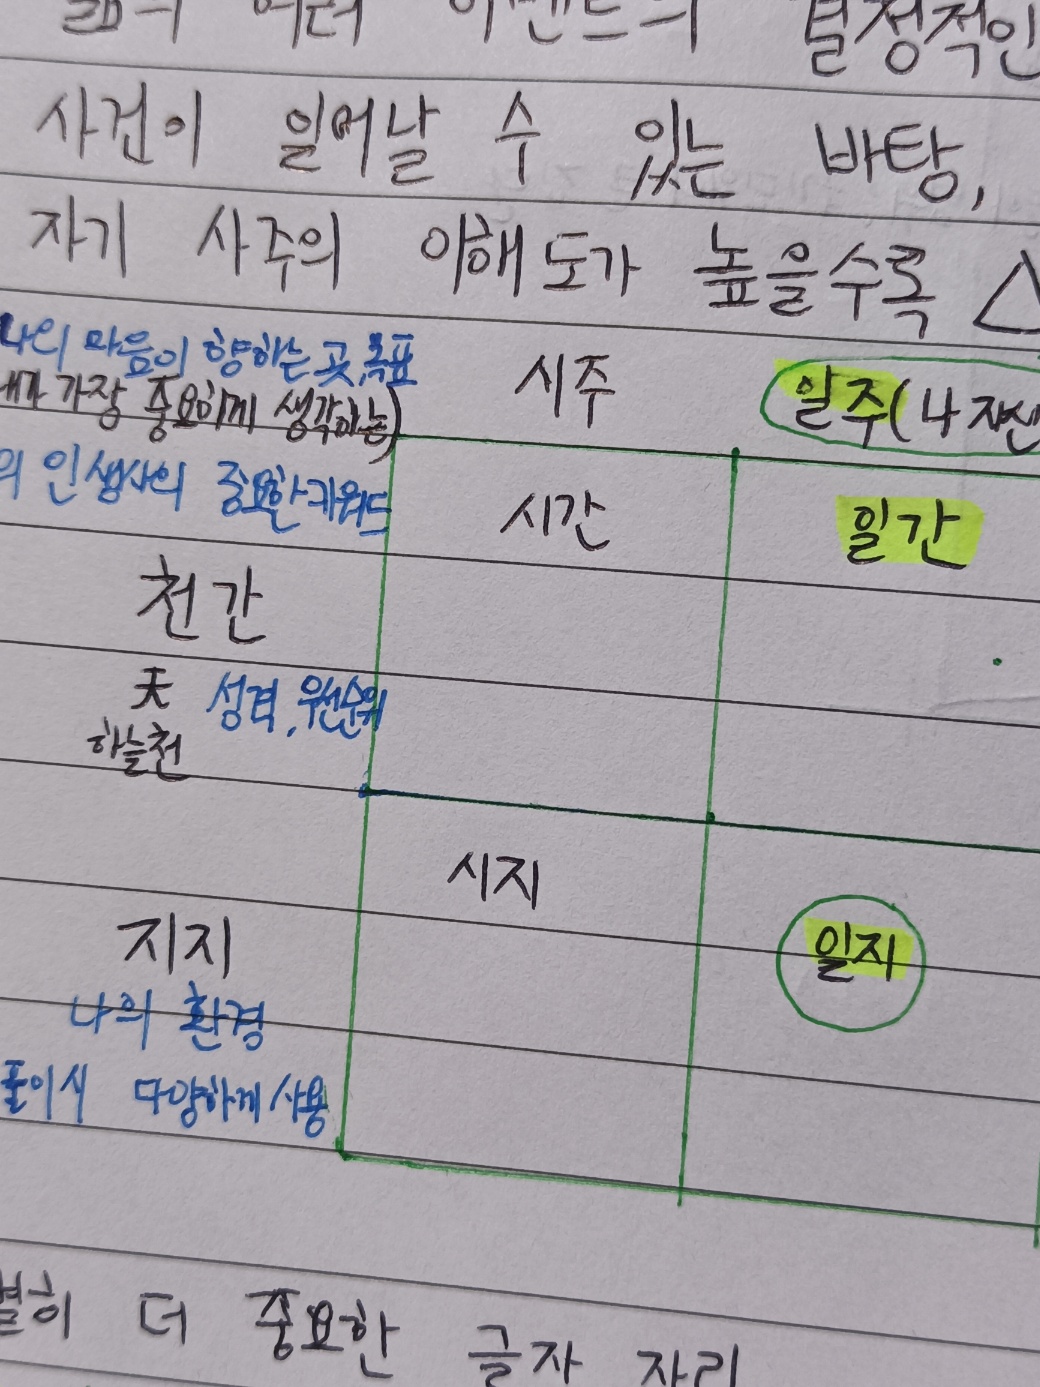 결정적인
사건이 일어날 수 있는 바탕,
자기 사주의 이해도가 높을수록 △
나의 마음이 향하는 곳, 목표
가장 중요하게 생각하는)
시주 일주(나 자신
의 인생사의 중요한 키워드
시간 일간
천간
天 성격, 우선순위
하늘천
시지
일지
지지
나의 환경
풀이시 다양하게 사용
더 중요한 글자 자리